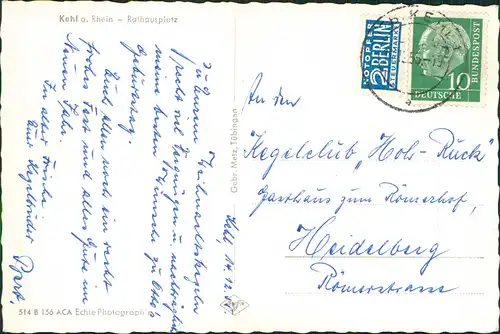 Kehl a. Rhein – Rathausplatz
Kehl, 14.12.
Zu Eurem Weihnachtskegeln
sendet viel Vergnügen u. nachträglich
meine besten Wünsche zu Otto's
Geburtstag.
Euch allen noch ein recht
frohes Fest und alles Gute im
Neuen Jahr.
In alter Frische
Euer Kegelbruder
514 B 156 ACA Echte Photograph
Gebr. Metz, Tübingen
NOTOPFER
2 BERLIN
STEUERMARKE
10
DEUTSCHE
BUNDESPOST
An den
Kegelclub "Holz-Ruck"
Gasthaus zum Römerhof,
Heidelberg
Römerstrasse